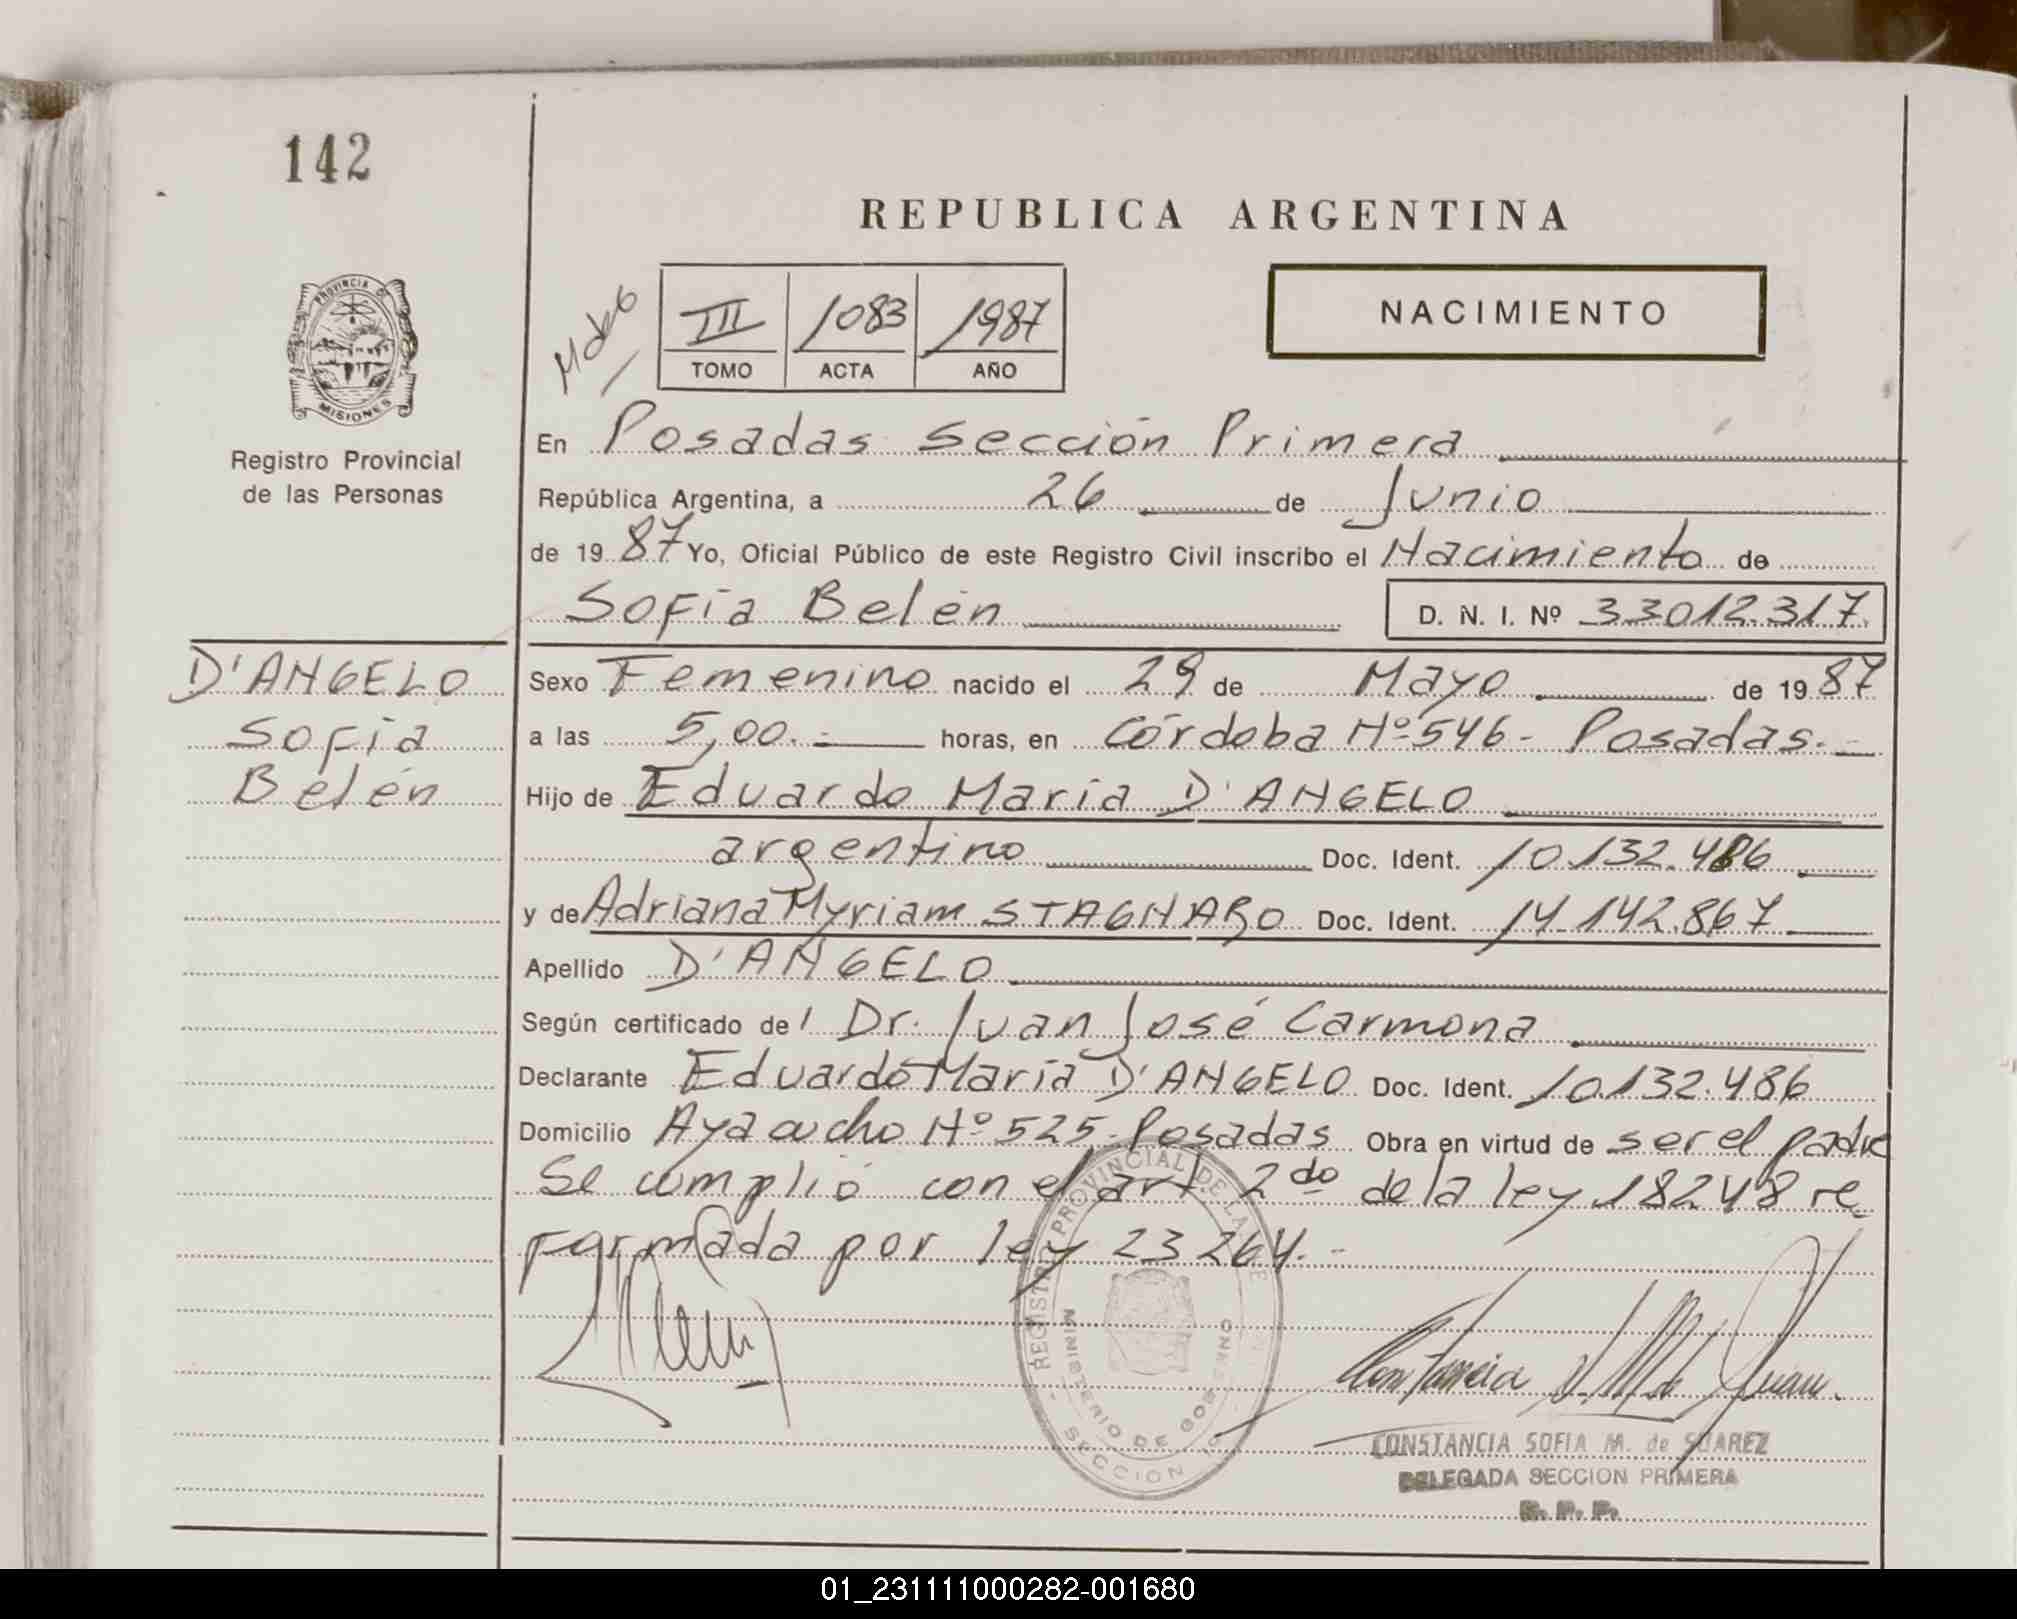 142
REPUBLICA ARGENTINA
PROVINCIA DE
MISIONES
Registro Provincial
de las Personas
III 1083 1987
TOMO ACTA AÑO
NACIMIENTO
En Posadas Sección Primera
República Argentina, a 26 de Junio
de 1987 Yo, Oficial Público de este Registro Civil inscribo el Nacimiento de
Sofía Belén D. N. I. Nº 33012.317
D'ANGELO
Sofía
Belén
Sexo Femenino nacido el 29 de Mayo de 1987
a las 5,00.- horas, en Córdoba Nº 546 - Posadas.-
Hijo de Eduardo María D'ANGELO
argentino Doc. Ident. 10.132.486
y de Adriana Myriam STAGNARO Doc. Ident. 14.142.867
Apellido D'ANGELO
Según certificado de l Dr. Juan José Carmona
Declarante Eduardo María D'ANGELO Doc. Ident. 10.132.486
Domicilio Ayacucho Nº 525 - Posadas Obra en virtud de ser el padre
Se cumplió con el art 2do de la ley 18248 re
formada por ley 23264.-
REGISTRO PROVINCIAL DE LA
MINISTERIO DE GOBIERNO
SECCION 1ª
CONSTANCIA SOFIA M. de SUAREZ
DELEGADA SECCION PRIMERA
R. P. P.
01_231111000282-001680